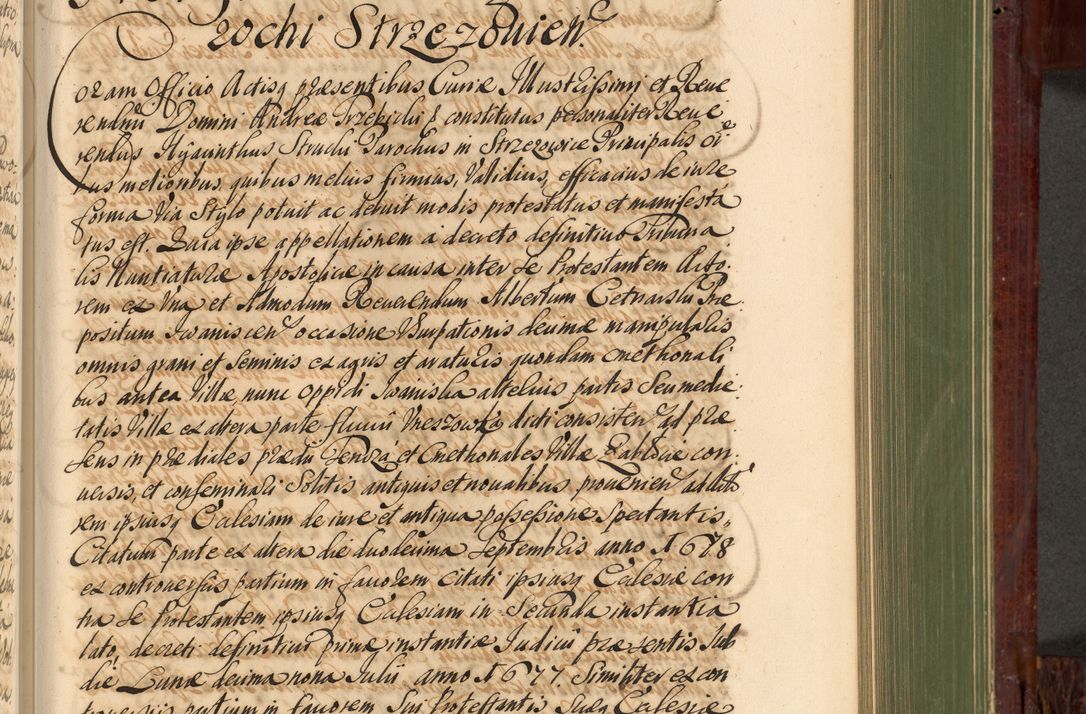 rochi Strzezouien.
oram Officio Actisq præsentibus Curiæ Illustrissimi et Reue
rendmi Domini Andreæ Trzebicki & constitutus personaliter Reue
rendus Hyacinthus Parochus in Strzezowice Principalis oi
bus melioribus, quibus melius firmius, Validius, efficacius de iure
forma Via Stylo potuit ac debuit modis protestatus et manifesta
tus est. Quia ipse appellationem a decreto definitiuo Tribuna
lis Nuntiaturæ Apostolicæ in causa inter se Protestantem Acto:
rem ex Vna et Admodum Reuerendum Albertum Præ:
positum Iwaniscen occasione Vsurpationis decimæ manipulalis
omnis grani et seminis ex agris et araturis quondam cmethonali
bus antea Villæ nunc Oppidi Iwaniska alterius partis Seu medie:
tatis Villæ ex altera parte fluuii dicti consisten ad præ
sens in prædiales prædii et Cmethonales Villæ con:
uersis, et conseminari Solitis antiquis et noualibus prouenien ad
rem ipsiusq Ecclesiam de iure et antiqua possessione Spectantis,
Citatum parte ex altera die duodecima Septembris anno 1678
ex controuersiis partium in fauorem Citati ipsiusq Ecclesiæ con
tra Se Protestantem ipsiusq Ecclesiam in Secunda instantia
lato, decreti definitiui primæ instantiæ Iudicii præsentis Sub
die Lunæ decima nona Iulii anno 1677. Similiter ex con
trouersiis partium in fauorem Sui Protestantis Suæq Ecclesiæ